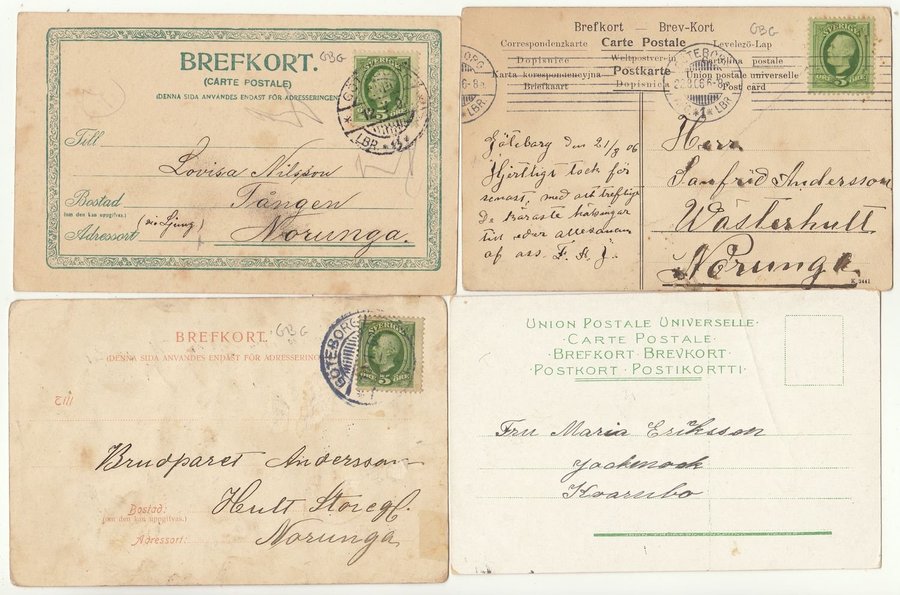 BREFKORT.
(CARTE POSTALE)
(DENNA SIDA ANVANDES ENDAST FÖR ADRESSERINGEN)
GBG
SVERIGE
5 ÖRE
LBR
Till
Lovisa Nilsson
Bostad
(om den kan uppgifvas)
Tången
Adressort
(via Ljung)
Norunga.
Brefkort — Brev-Kort
GBG
Correspondenzkarte Carte Postale Levelező-Lap
Dopisnice Weltpostver-ein postale
Karta korespondencyjna Postkarte Union postale universelle
Brefkaart Dopisnica Post card
GÖTEBORG
22.8.06 6-8
1 LBR
5
Göteborg den 21/8 06
Hjertligt tack för
senast, med
De käraste hälsningar
till eder allesamman
af F. K. J.
Herr
Sanfrid Andersson
Wästerhult
Norunga
K. 2441
BREFKORT.
GBG
(DENNA SIDA ANVANDES ENDAST FÖR ADRESSERINGEN)
GÖTEBORG
SVERIGE
5 ÖRE
Till
Brudparet Andersson
Bostad:
(om den kan uppgifvas.)
Hult Storegl.
Adressort:
Norunga
UNION POSTALE UNIVERSELLE·
·CARTE POSTALE·
·BREFKORT BREVKORT·
·POSTKORT·POSTIKORTTI·
Fru Maria Eriksson
Jockmock
Kvarnbo